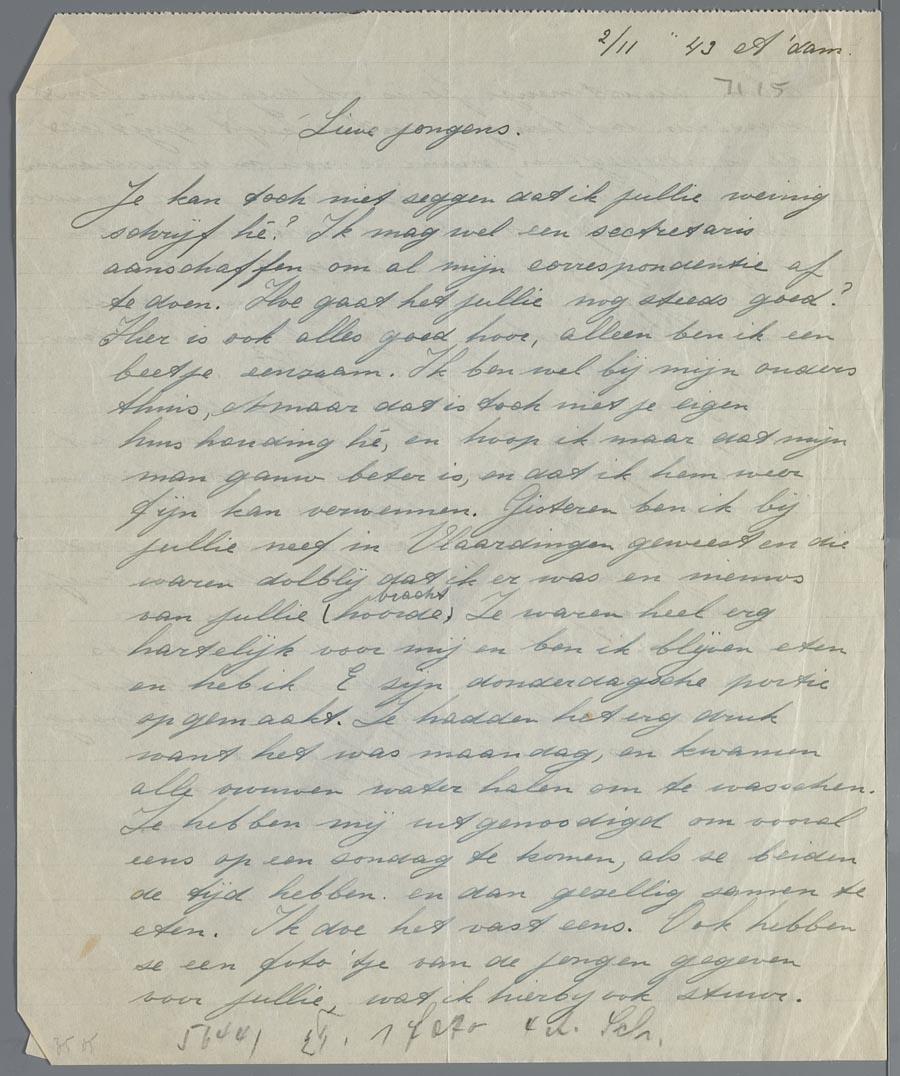 2/11 '43 A'dam.
7115
Lieve jongens.
Je kan toch niet seggen dat ik jullie weinig
schrijf hé? Ik mag wel een sectretaris
aanschaffen om al mijn correspondentie af
te doen. Hoe gaat het jullie nog steeds goed?
Hier is ook alles goed hoor, alleen ben ik een
beetje eenzaam. Ik ben wel bij mijn ouders
thuis, maar dat is toch niet je eigen
huishouding hé, en hoop ik maar dat mijn
man gauw beter is, en dat ik hem weer
fijn kan verwennen. Gisteren ben ik bij
jullie neef in Vlaardingen geweest en die
waren dolblij dat ik er was en nieuws
van jullie (hoorde) bracht Ze waren heel erg
hartelijk voor mij en ben ik blijven eten
en heb ik E sijn donderdagsche portie
opgemaakt. Ze hadden het erg druk
want het was maandag, en kwamen
alle vrouwen water halen om te wasschen.
Ze hebben mij uitgenoodigd om vooral
eens op een zondag te komen, als se beiden
de tijd hebben. en dan gezellig samen te
eten. Ik doe het vast eens. Ook hebben
se een foto'tje van de jongen gegeven
voor jullie, wat ik hierbij ook stuur.
1 foto